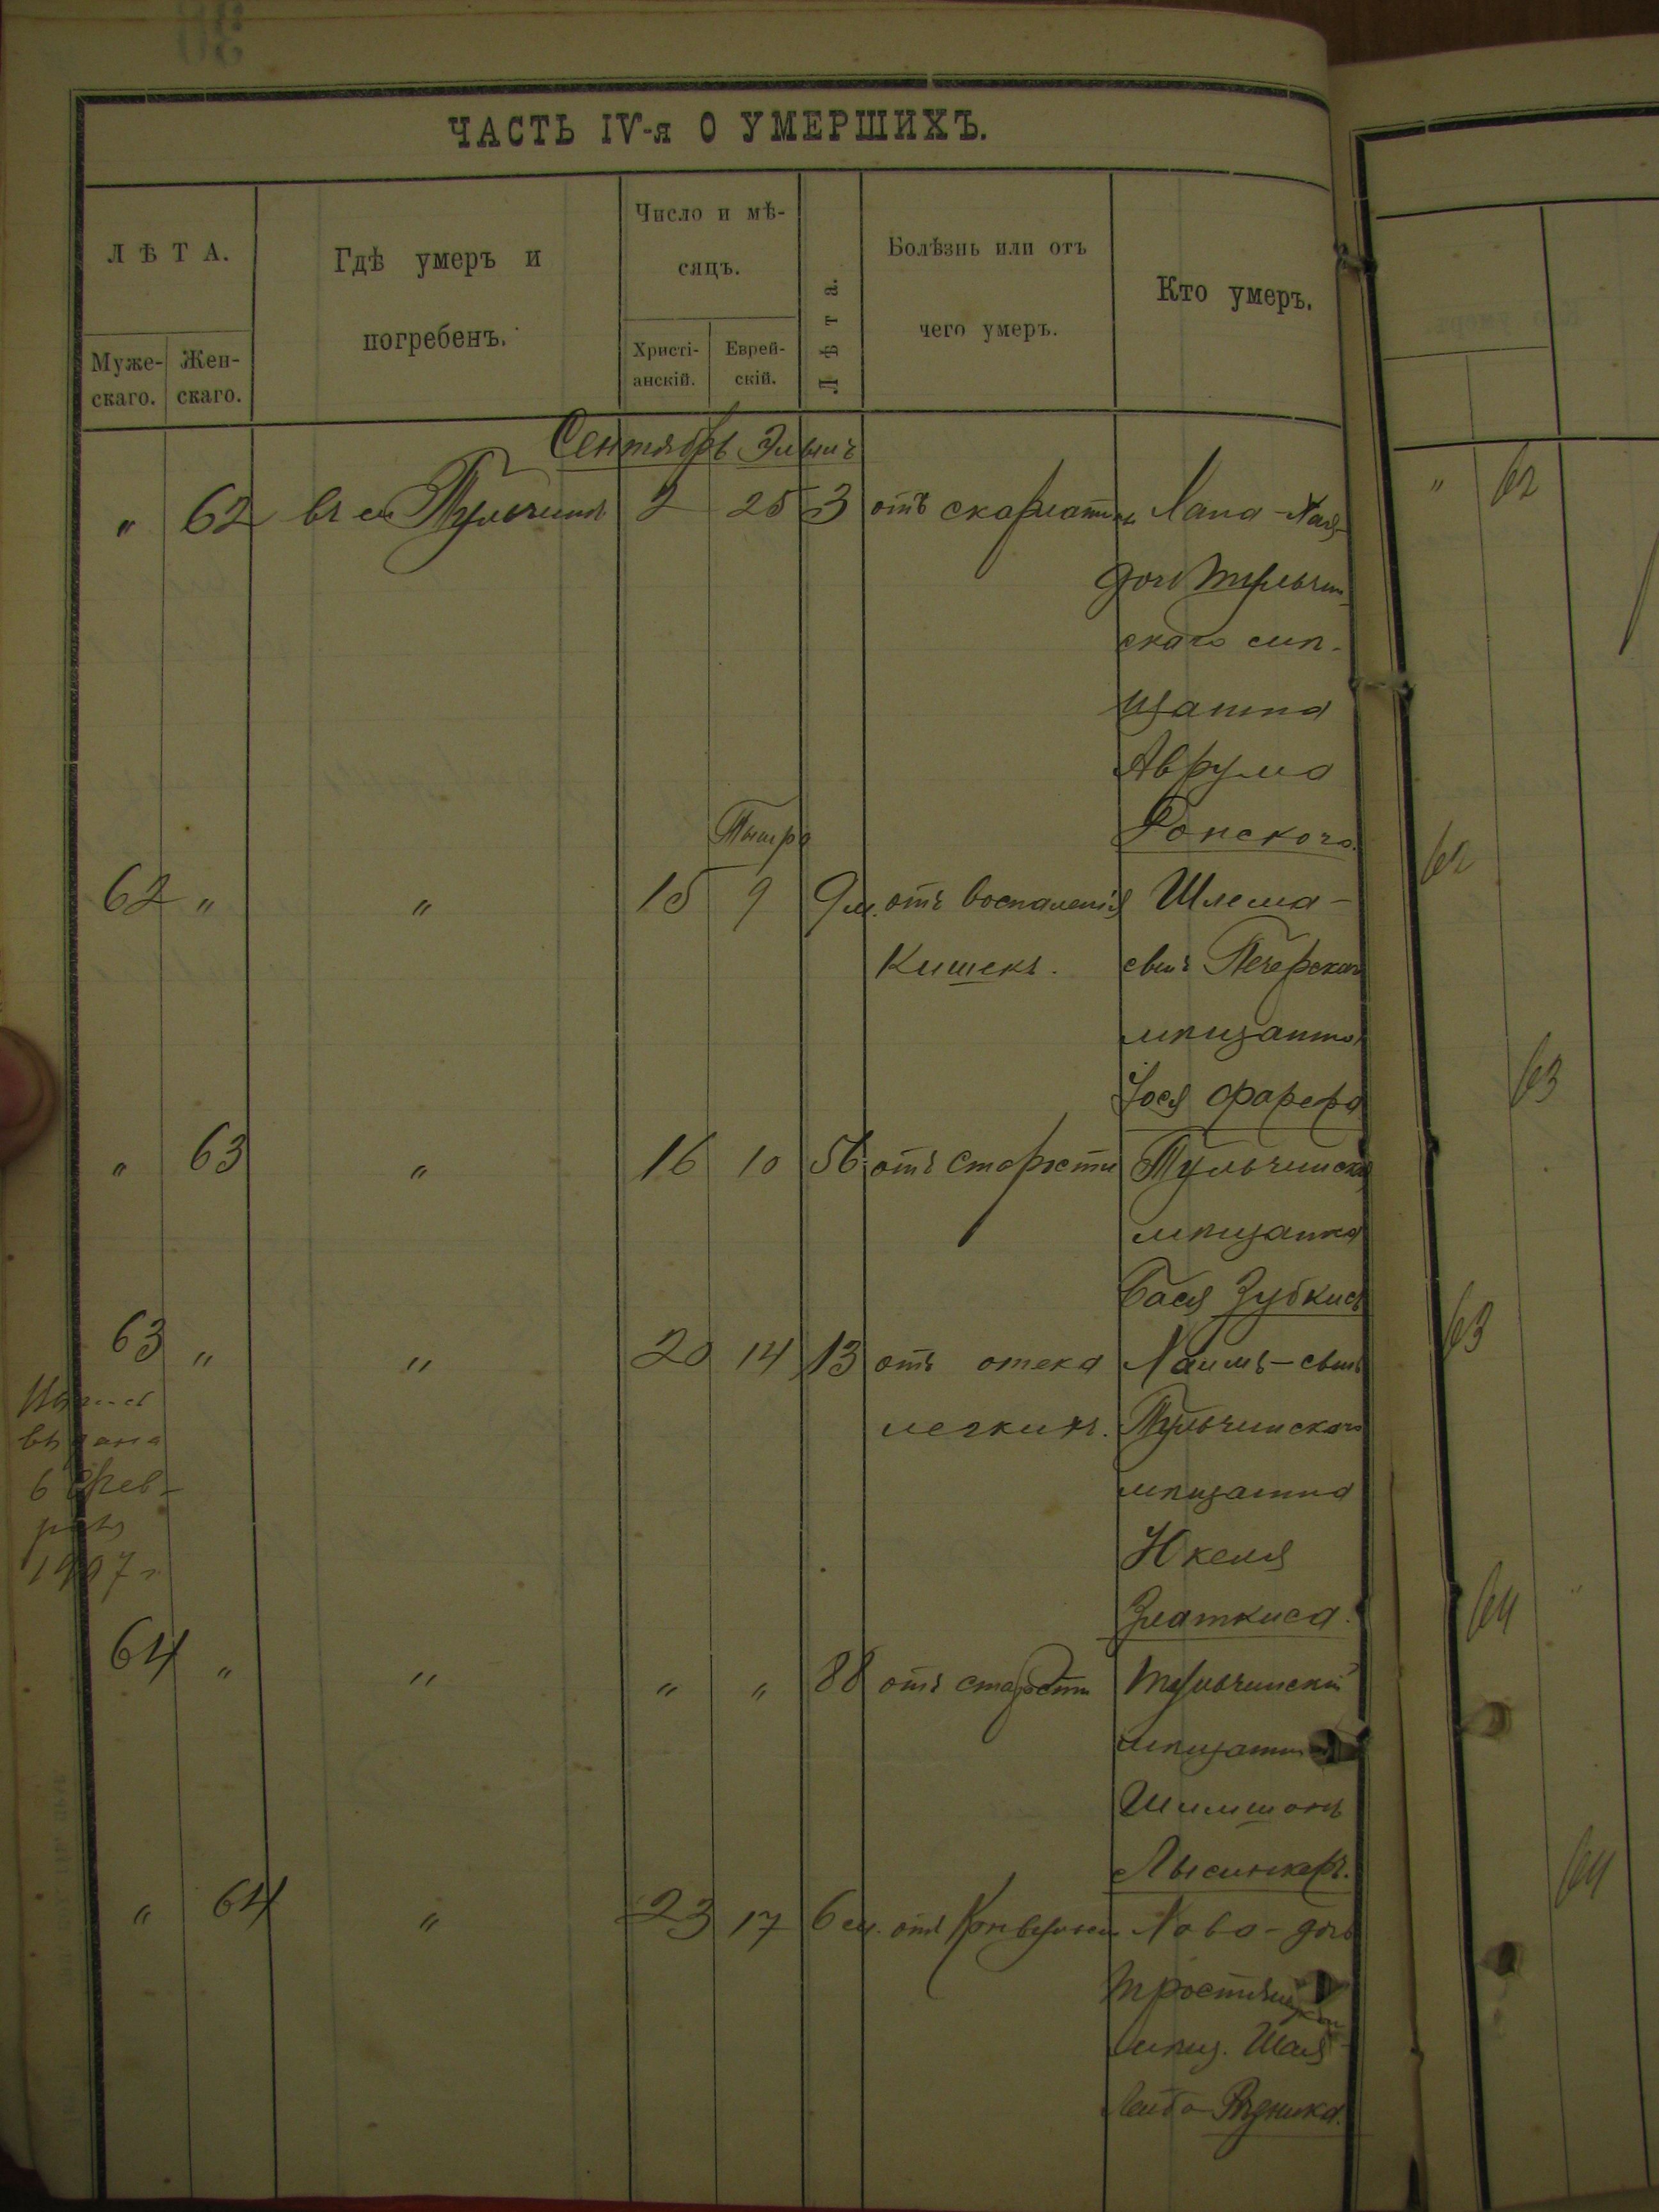 ЧАСТЬ IV-я О УМЕРШИХЪ.
ЛѢТА.
Муже-
скаго.
Жен-
скаго.
Гдѣ умеръ и
погребенъ.
Число и мѣ-
сяцъ.
Христі-
анскій.
Еврей-
скій.
Лѣта.
Болѣзнь или отъ
чего умеръ.
Кто умеръ.
Сентябрь Элылъ
" 62 въ м Тульчинѣ 2 25 3 отъ скарлатины Хана-Хая
дочь Тульчин
скаго мѣ-
щанина
Аврума
Тишра
62 " " 15 9 9 м. отъ воспаленія Шлема-
Кишекъ. сынъ Печерскаго
мѣщанина
Іося Фарера
" 63 " 16 10 56 отъ старости Тульчинская
мѣщанка
Бася Зубкисъ
63 " " 20 14 13 отъ отека Хаимъ-сынъ
легкихъ. Тульчинскаго
мѣщанина
Златкиса.
выдана
6 Фев-
раля
1907 г
64 " " " " 88 отъ старости Тульчинскій
мѣщанинъ
Шимшонъ
Лысинкеръ.
" 64 " 23 17 6 м. отъ Конвульсіи Хова-дочь
мѣщ. Шая
Лейба Рѣзника.
" 62
62
63
63
64 "
64